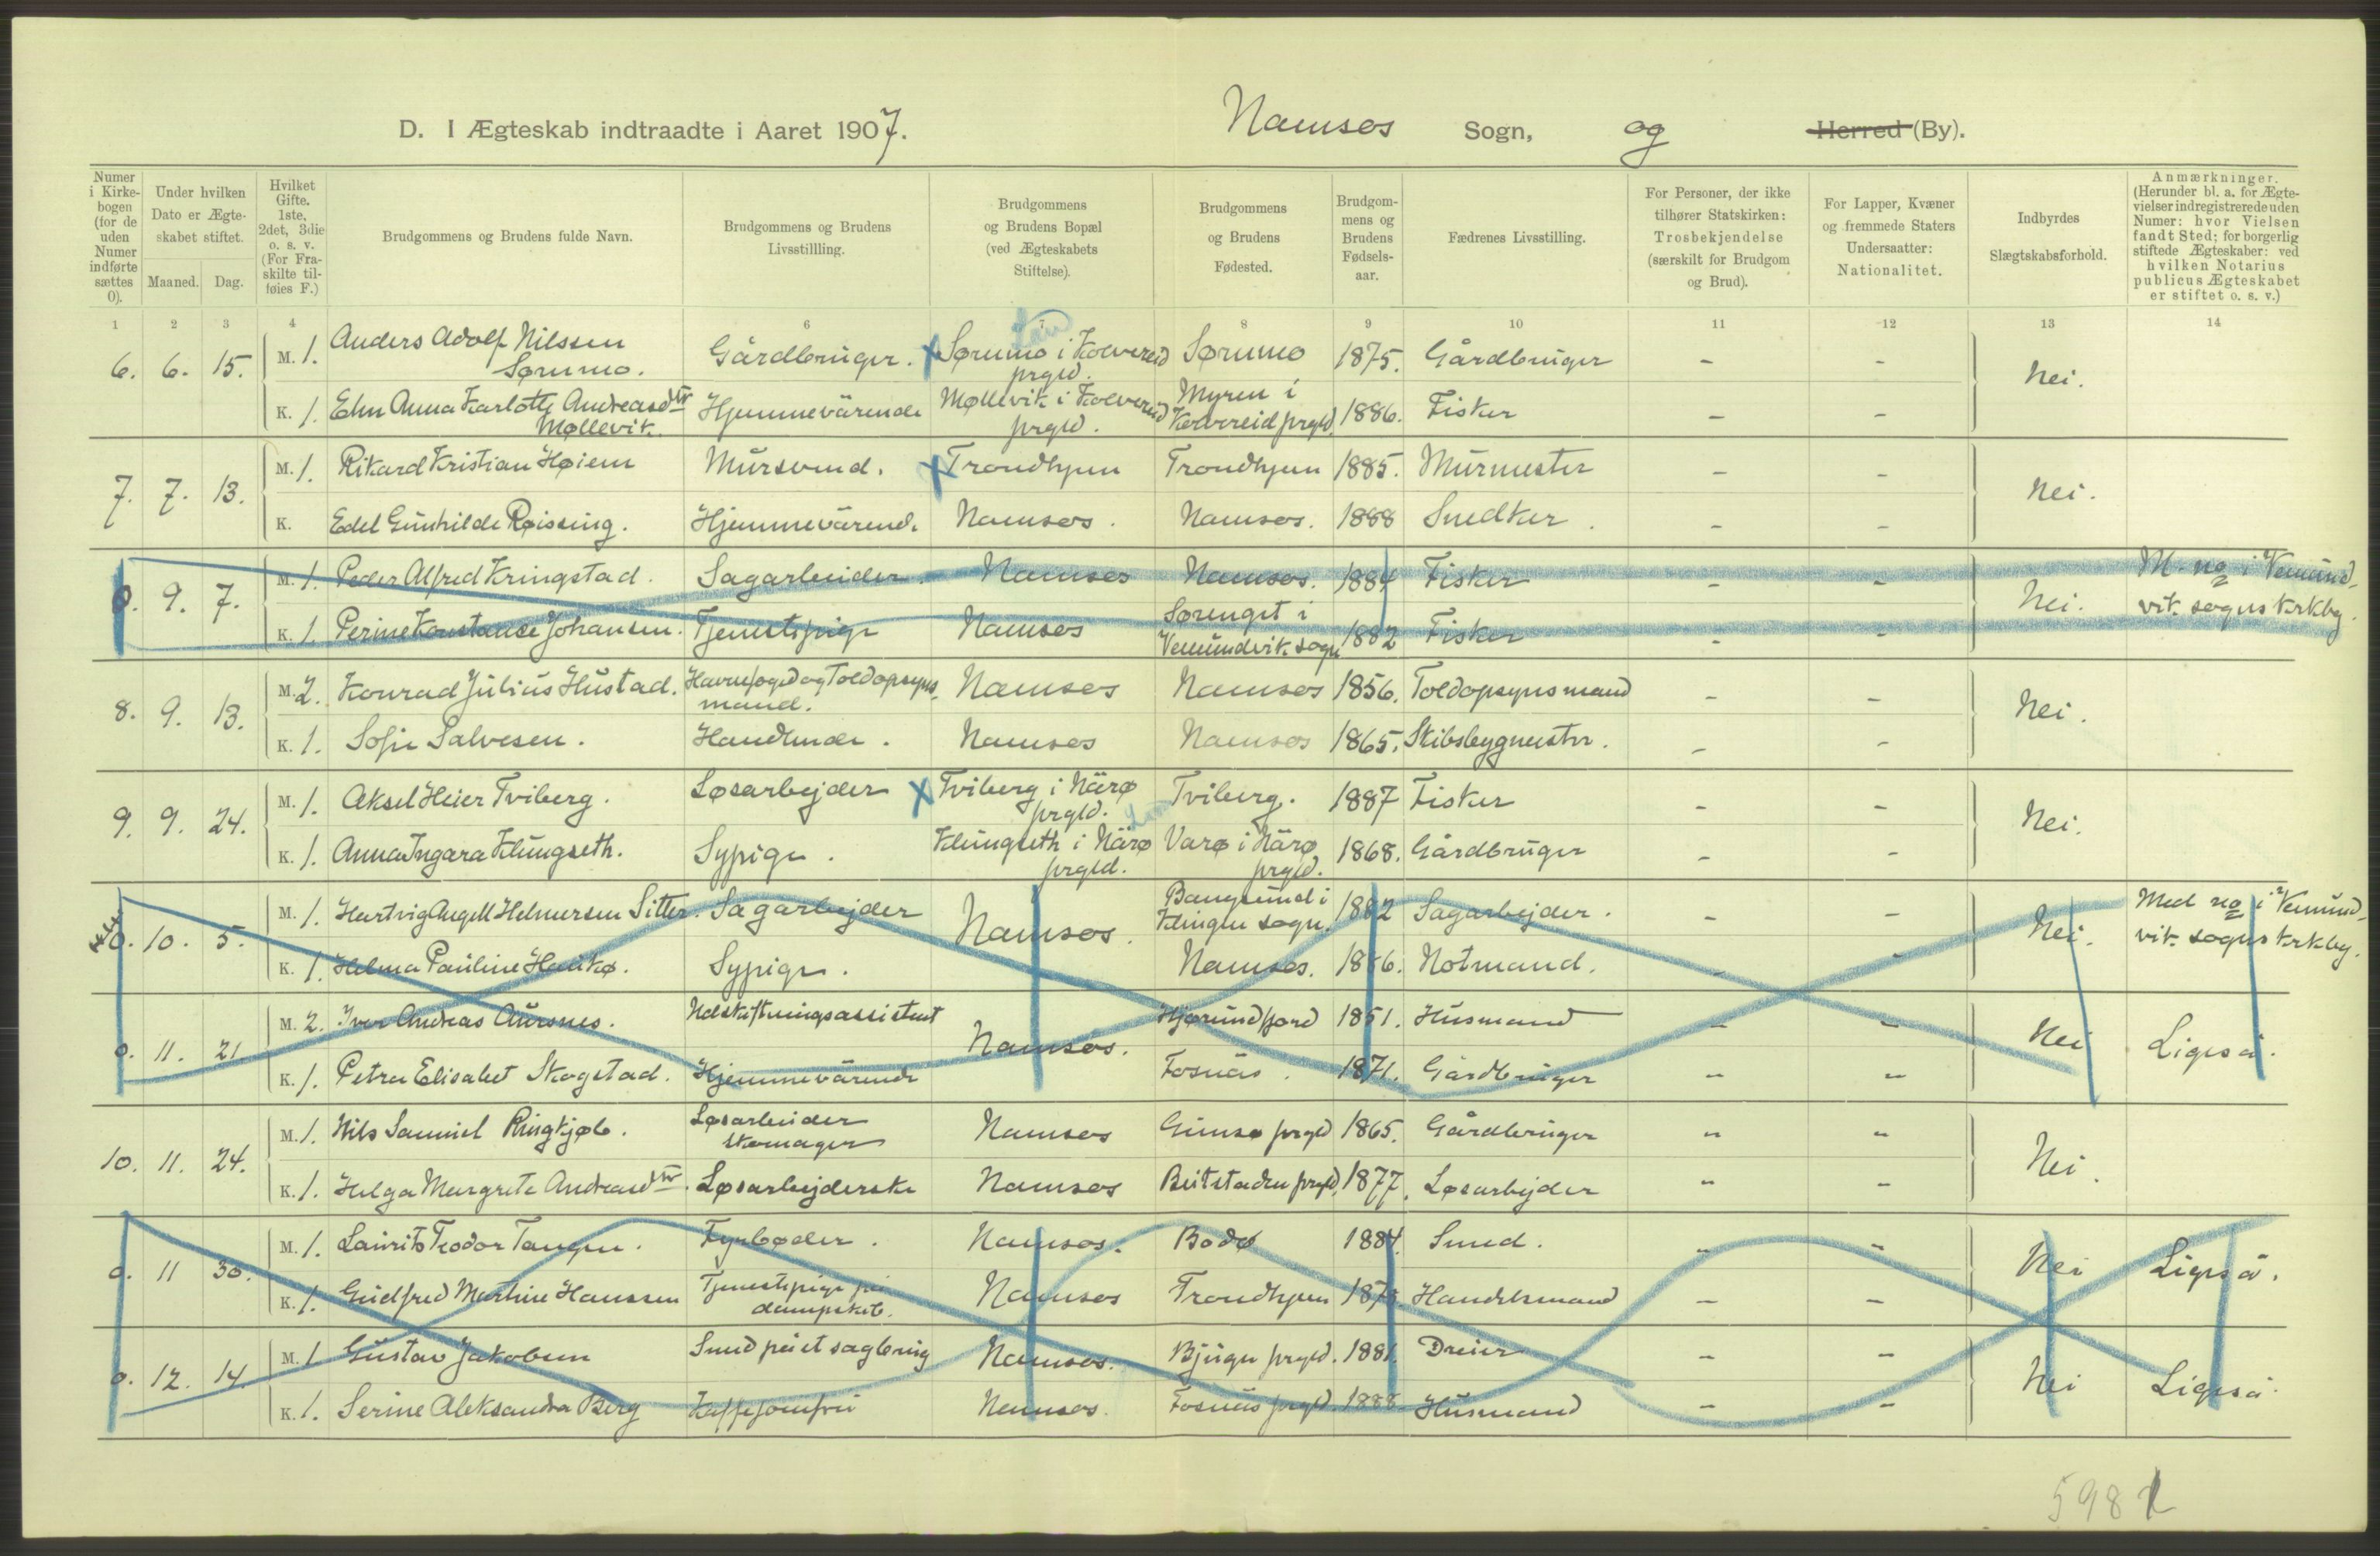 D. I Ægteskab indtraadte i Aaret 1907. Namsos Sogn, og Herred (By).
Numer i Kirkebogen (for de uden Numer indførte sættes 0).
Under hvilken Dato er Ægteskabet stiftet.
Maaned. Dag.
Hvilket Gifte, 1ste, 2det, 3die o. s. v. (For Fraskilte tilføies F.)
Brudgommens og Brudens fulde Navn.
Brudgommens og Brudens Livsstillling.
Brudgommens og Brudens Bopæl (ved Ægteskabets Stiftelse).
Brudgommens og Brudens Fødested.
Brudgommens og Brudens Fødselsaar.
Fædrenes Livsstilling.
For Personer, der ikke tilhører Statskirken: Trosbekjendelse (særskilt for Brudgom og Brud).
For Lapper, Kvæner og fremmede Staters Undersaatter: Nationalitet.
Indbyrdes Slægtskabsforhold.
Anmærkninger. (Herunder bl. a. for Ægtevielser indregistrerede uden Numer: hvor Vielsen fandt Sted; for borgerlig stiftede Ægteskaber: ved hvilken Notarius publicus Ægteskabet er stiftet o. s. v.)
1 2 3 4 6 7 8 9 10 11 12 13 14
6. 6. 15. M. 1. Anders Adolf Nilssen Sørumo. Gårdbruger. x Sørumo i Kolvereid prgld. Sørumo 1875. Gårdbruger - - Nei.
K. 1. Elen Anna Karlotte Andreasdtr Møllevik. Hjemmeværende Møllevik i Kolvereid prgld. Myren i Kolvereid prgld. 1886. Fisker - -
7. 7. 13. M. 1. Rikard Kristian Høiem Mursvend. x Trondhjem Trondhjem 1885. Murmester - - Nei.
K. Edel Gunhilde Røissing. Hjemmeværende Namsos. Namsos. 1888 Snedker. - -
0. 9. 7. M. 1. Peder Alfred Kringstad. Sagarbeider. Namsos Namsos. 1884 Fisker - - Nei. M. no i Vemundvik sogns krkbg.
K. 1. Perine Konstanse Johansen. Tjenestepige Namsos Sørenget i Vemundvik sogn 1882 Fisker - -
8. 9. 13. M. 2. Konrad Julius Hustad. Havnefoged og Toldopsynsmand. Namsos Namsos 1856. Toldopsynsmand - - Nei.
K. 1. Sofie Salvesen. Handlende. Namsos Namsos 1865. Skibsbygmester. - -
9. 9. 24. M. 1. Aksel Heier Tviberg. Løsarbejder x Tviberg i Närø prgld. Tviberg. 1887 Fisker - - Nei.
K. 1. Anna Ingara Klungseth. Sypige. Klungseth i Närø prgld. Varø i Närø prgld. 1868. Gårdbruger - -
0. 10. 5. M. 1. Hartvig Angell Helmersen Sitter. Sagarbejder Namsos. Bangsund i Klingen sogn. 1882 Sagarbejder. - - Nei. Med no i Vemundvik sogns krkbg.
K. 1. Helma Pauline Haukø. Sypige. Namsos. 1886. Notmand. - -
0. 11. 21. M. 2. Iver Andreas Aursnes. Udskiftningsassistent Namsos. Hjørundfjord 1851. Husmand - - Nei Ligeså.
K. 1. Petra Elisabet Skogstad. Hjemmeværende Fosnäs. 1871. Gårdbruger - -
10. 11. 24. M. 1. Nils Samuel Ringkjøb. Løsarbeider skomager Namsos Gimsø prgld 1865. Gårdbruger - - Nei.
K. 1. Helga Margrete Andreasdtr. Løsarbejderske Namsos Beitstaden prgld. 1877. Løsarbejder - -
0. 11 30. M. 1. Laurits Teodor Tangen. Fyrbøder. Namsos. Bodø 1884. Smed. - - Nei Ligeså.
K. 1. Gudfred Martine Hanssen Tjenestepige på dampskib. Namsos Trondhjem Handelsmand - -
0. 12. 14. M. 1 Gustav Jakobsen Smed på et sagbrug Namsos. Bjugn prgld. 1881. Dreier - - Nei Ligeså.
K. 1. Serine Aleksandra Berg Kaffejomfru Namsos. Fosnäs prgld. 1888. Husmand - -
598